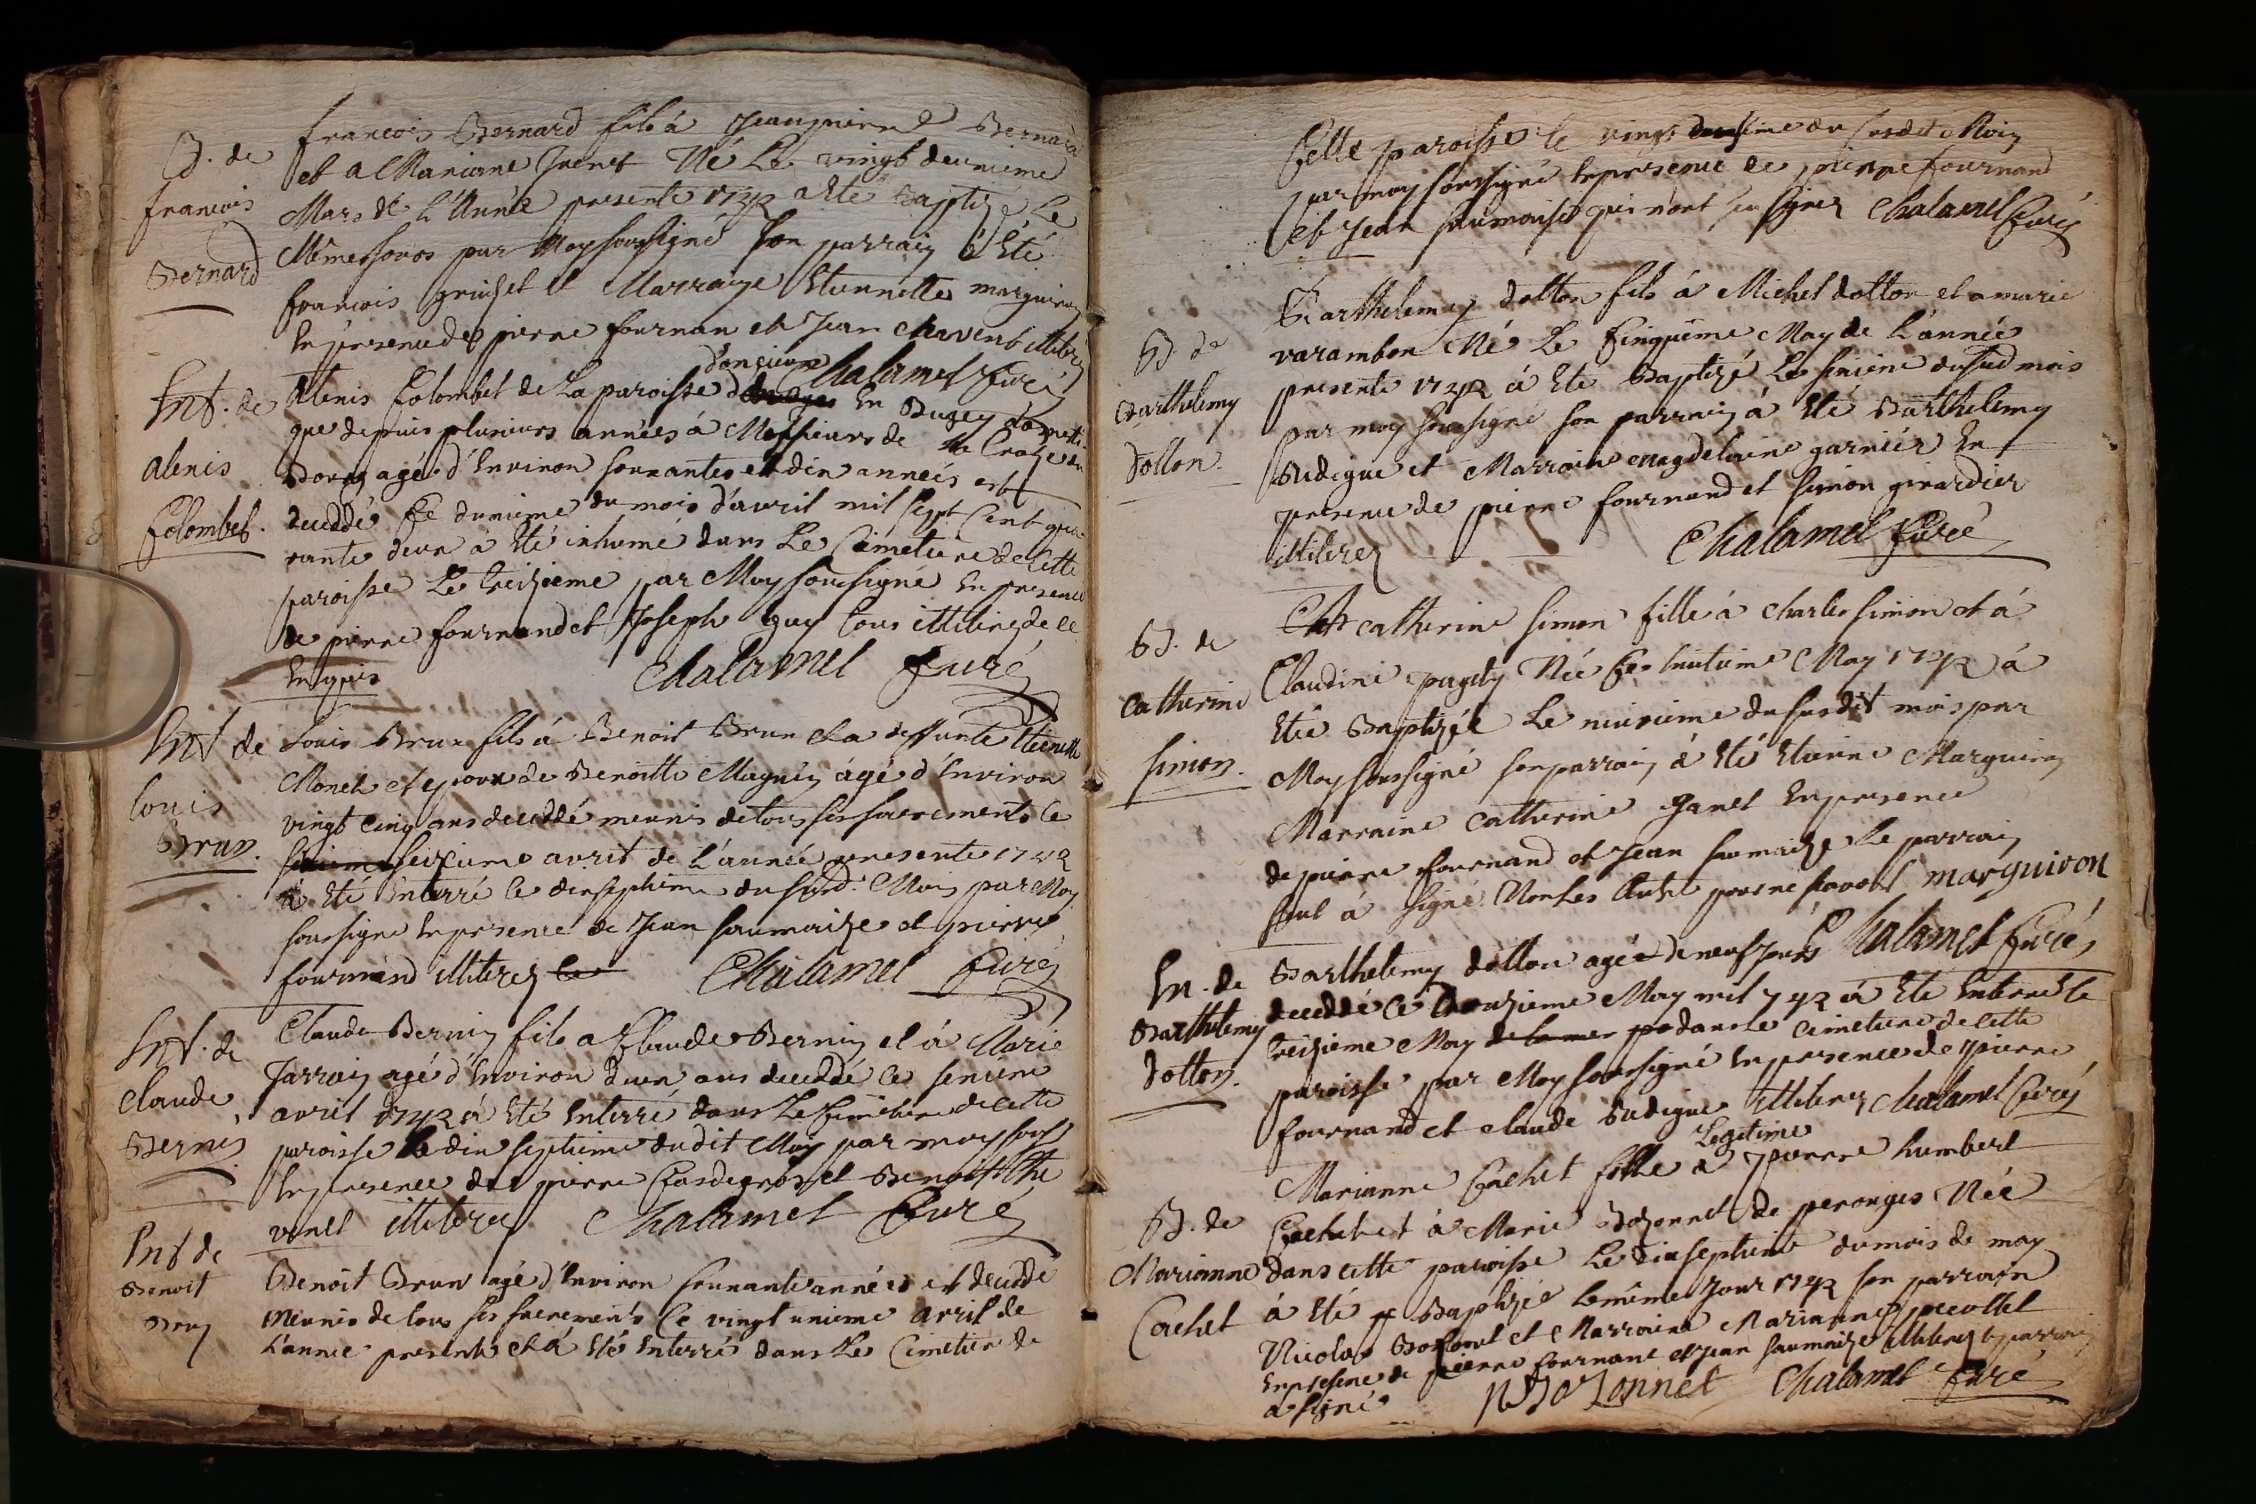 B. de
francois
Bernard
francois Bernard fils à Jeanpierre Bernard
et a Mariane Née Le vingt deuxieme
Mars de L'Année presente 1742 a Eté Baptizé Le
Mêmes jours par Moy soussigné son parrain à Eté
francois et Marraine Etiennette marguiron
En presence de pierre fournan et Jean Chavent illiterez
Chalamel Curé
Ent. de
alexis
Colombet.
Alexis Colombet de La paroisse En Bugey domesti-
que depuis plusieurs années à Messieurs de
agé d'Environ soixantes et dix années est
decedé Ce du mois d'avril mil sept Cent qua-
rante deux a Eté inhumé dans Le Cimetiere de Cette
paroisse Le treizieme par Moy soussigné En presence
de pierre fournand et Joseph Guy tous illiterez de ce
Enquis
Chalamel Curé
Ent de
Louis
Brun.
Louis Brun fils à Benoit Brun et a deffunte Etiennette
Monet et epoux de Benoitte Magnin âgé d'Environ
vingt Cinq ans decedé meunis de tous ses sacrements Ce
seizieme avril de L'année presente 1742
a Eté Enterré le dixseptieme du susd. Mois par Moy
soussigné En presence de Jean saumaize et pierre
fournand illiterez
Chalamel Curé
Ent. de
claude
Bernin
Claude Bernin fils a Claude Bernin et à Marie
Jarrin agé d'Environ deux ans decedé ce
avril 1742 à Eté Enterré dans Le Cimetiere de cette
paroisse le dix septieme dudit Mois par moy sous.
En presence de pierre Cardegros et Benoit The
venet illiterez Chalamel Curé
Ent de
Benoit
Brun
Benoit Brun agé d'Environ soixante années est decedé
Meunis de tous ses sacrements Ce vingt unieme avril de
L'année presente et à Eté Enterré dans Le Cimetiere de
Cette paroisse le vingt deuxieme du susdit Mois
par moy soussigné En presence de pierre fournand
et Jean saumaise qui n'ont sçu signer Chalamel Curé
B. de
Barthelemy
Dotton.
Barthelemy dotton fils à Michel dotton et a marie
varambon Né Le Cinquième May de L'année
presente 1742 à Eté Baptizé Le sixieme du sud mois
par moy soussigné son parrain à Eté Barthelemy
Budigue et Marraine Magdelaine garnier En
presence de pierre fournand et simon girardier
illiterez
Chalamel Curé
B. de
Catherine
simon.
Catherine simon fille à charles simon et à
Claudine pugety Née Ce huitieme May 1742 à
Etée Baptizée Le neuvieme du susdit mois par
Moy soussigné son parrain à Eté Etienne Marguiron
Marraine Catherine Janet En presence
de pierre fournand et Jean saumaize Le parrain
seul à signé Non Les Autre pour ne savoir marguiron
Chalamel Curé
En. de
Barthelemy
Dotton.
Barthelemy dotton agé de neuf jours
decedé ce douzieme May mil 742 à Eté Enterré le
treizieme May dans Le cimetiere de cette
paroisse par Moy soussigné En presence de pierre
fournand et claude Budigue illiterez Chalamel Curé
B. de
Marianne
Cachet
Marianne Cachet fille Legitime à pierre humbert
Cachet et à Marie Bozonnet de perouges Née
dans cette paroisse Le dixseptieme du mois de may
à Eté Baptizée Le même Jour 1742 son parrain
Nicolas Bozonnet et Marraine Marianne pecollet
En presence de pierre fournand et Jean saumaize illiterez le parrain
a signé
N Bozonnet Chalamel Curé